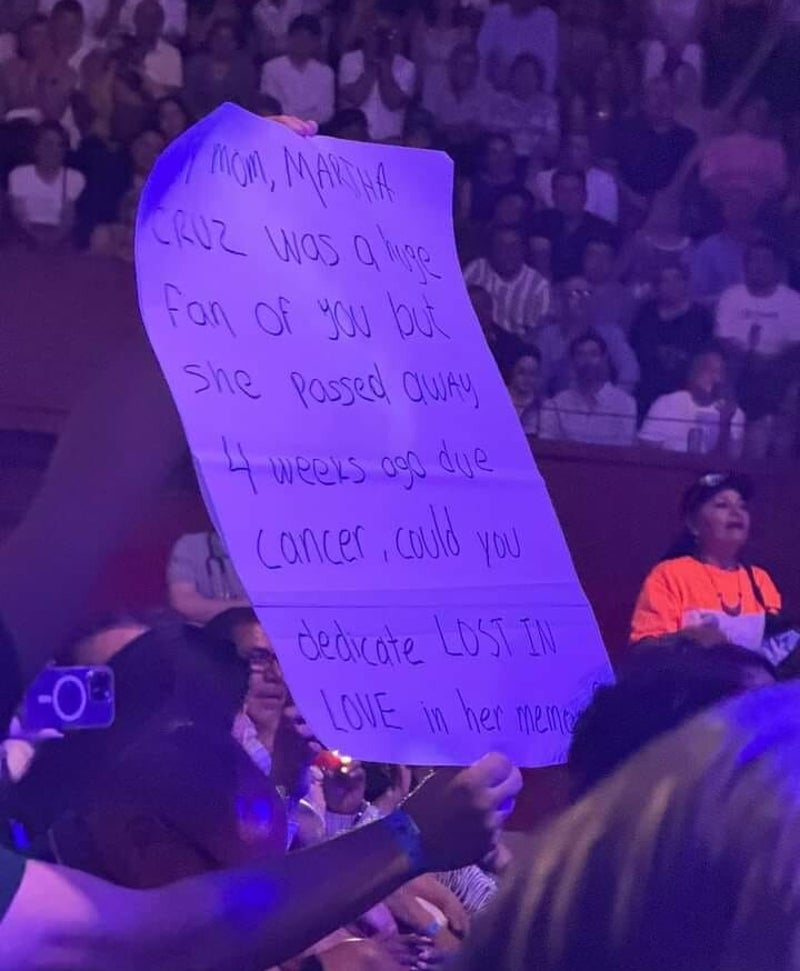 MOM, MARTHA
CRUZ was a huge
fan of you but
she passed away
4 weeks ago due
cancer, could you
dedicate LOST IN
LOVE in her